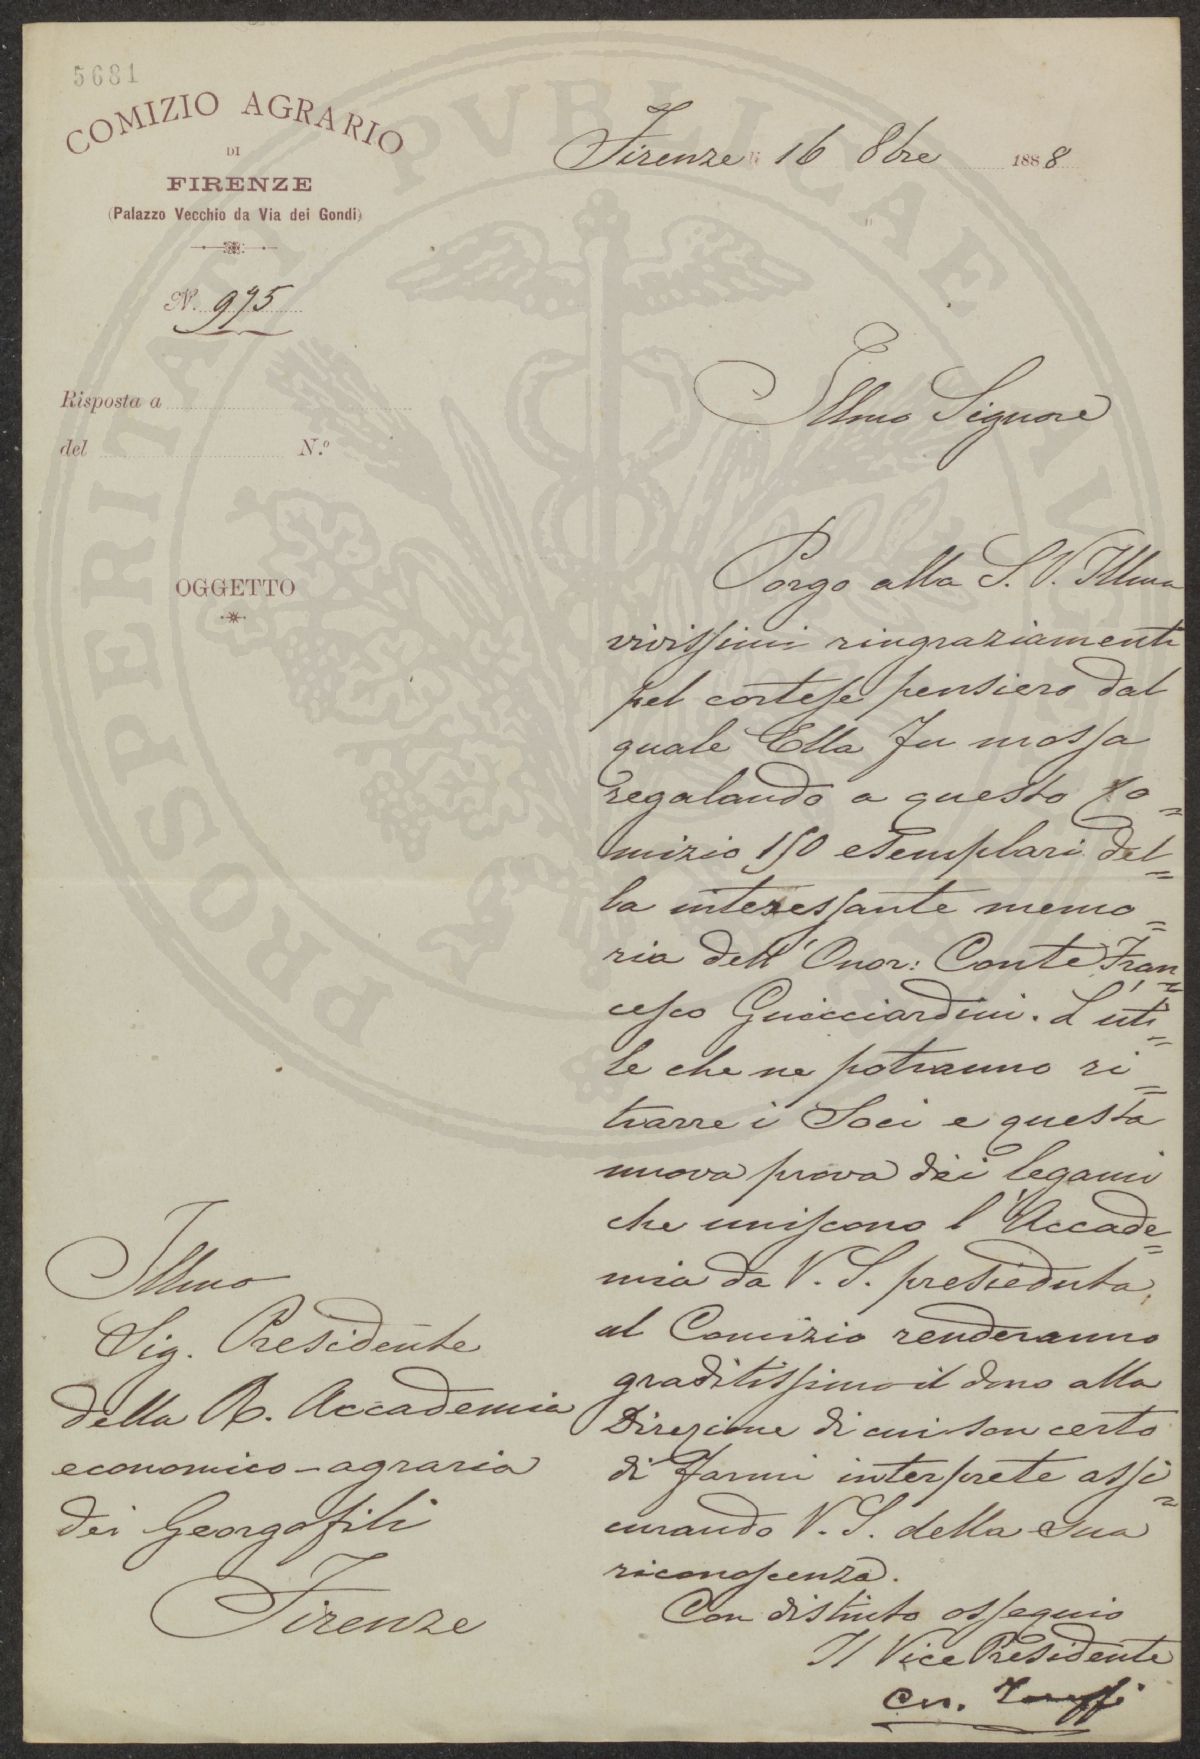 5681
COMIZIO AGRARIO
DI
FIRENZE
(Palazzo Vecchio da Via dei Gondi)
N. 975
Risposta a
del N.º
OGGETTO
Firenze li 16 8bre 1888
Illmo Signore
Porgo alla S. V. Illma
vivissimi ringraziamenti
pel cortese pensiero dal
quale Ella fu mossa
regalando a questo Co=
mizio 150 esemplari del=
la interessante memo=
ria dell'Onor: Conte Fran=
cesco Guicciardini. L'uti=
le che ne potranno ri=
trarre i Soci e questa
nuova prova dei legami
che uniscono l'Accade=
mia da V. S. presieduta,
al Comizio renderanno
graditissimo il dono alla
Direzione di cui son certo
di farmi interprete assi=
curando V. S. della sua
riconoscenza.
Con distinto ossequio
Il Vice Presidente
Illmo
Sig. Presidente
della R. Accademia
economico-agraria
dei Georgofili
Firenze
PROSPERITATI PVBLICAE AVGENDAE